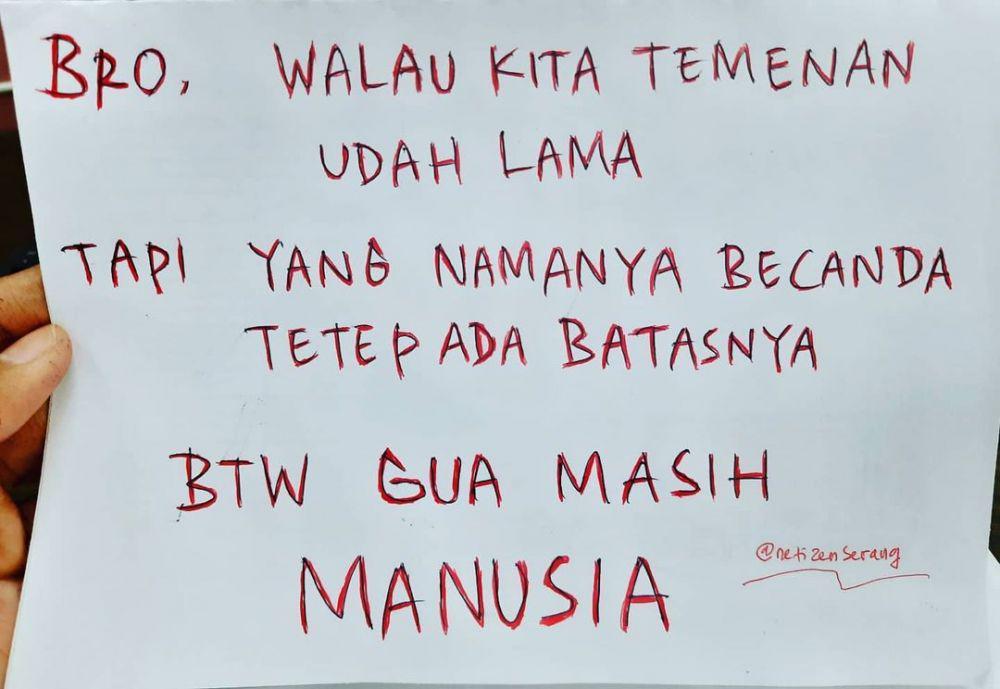 BRO, WALAU KITA TEMENAN
UDAH LAMA
TAPI YANG NAMANYA BECANDA
TETEP ADA BATASNYA
BTW GUA MASIH
MANUSIA
@netizenserang